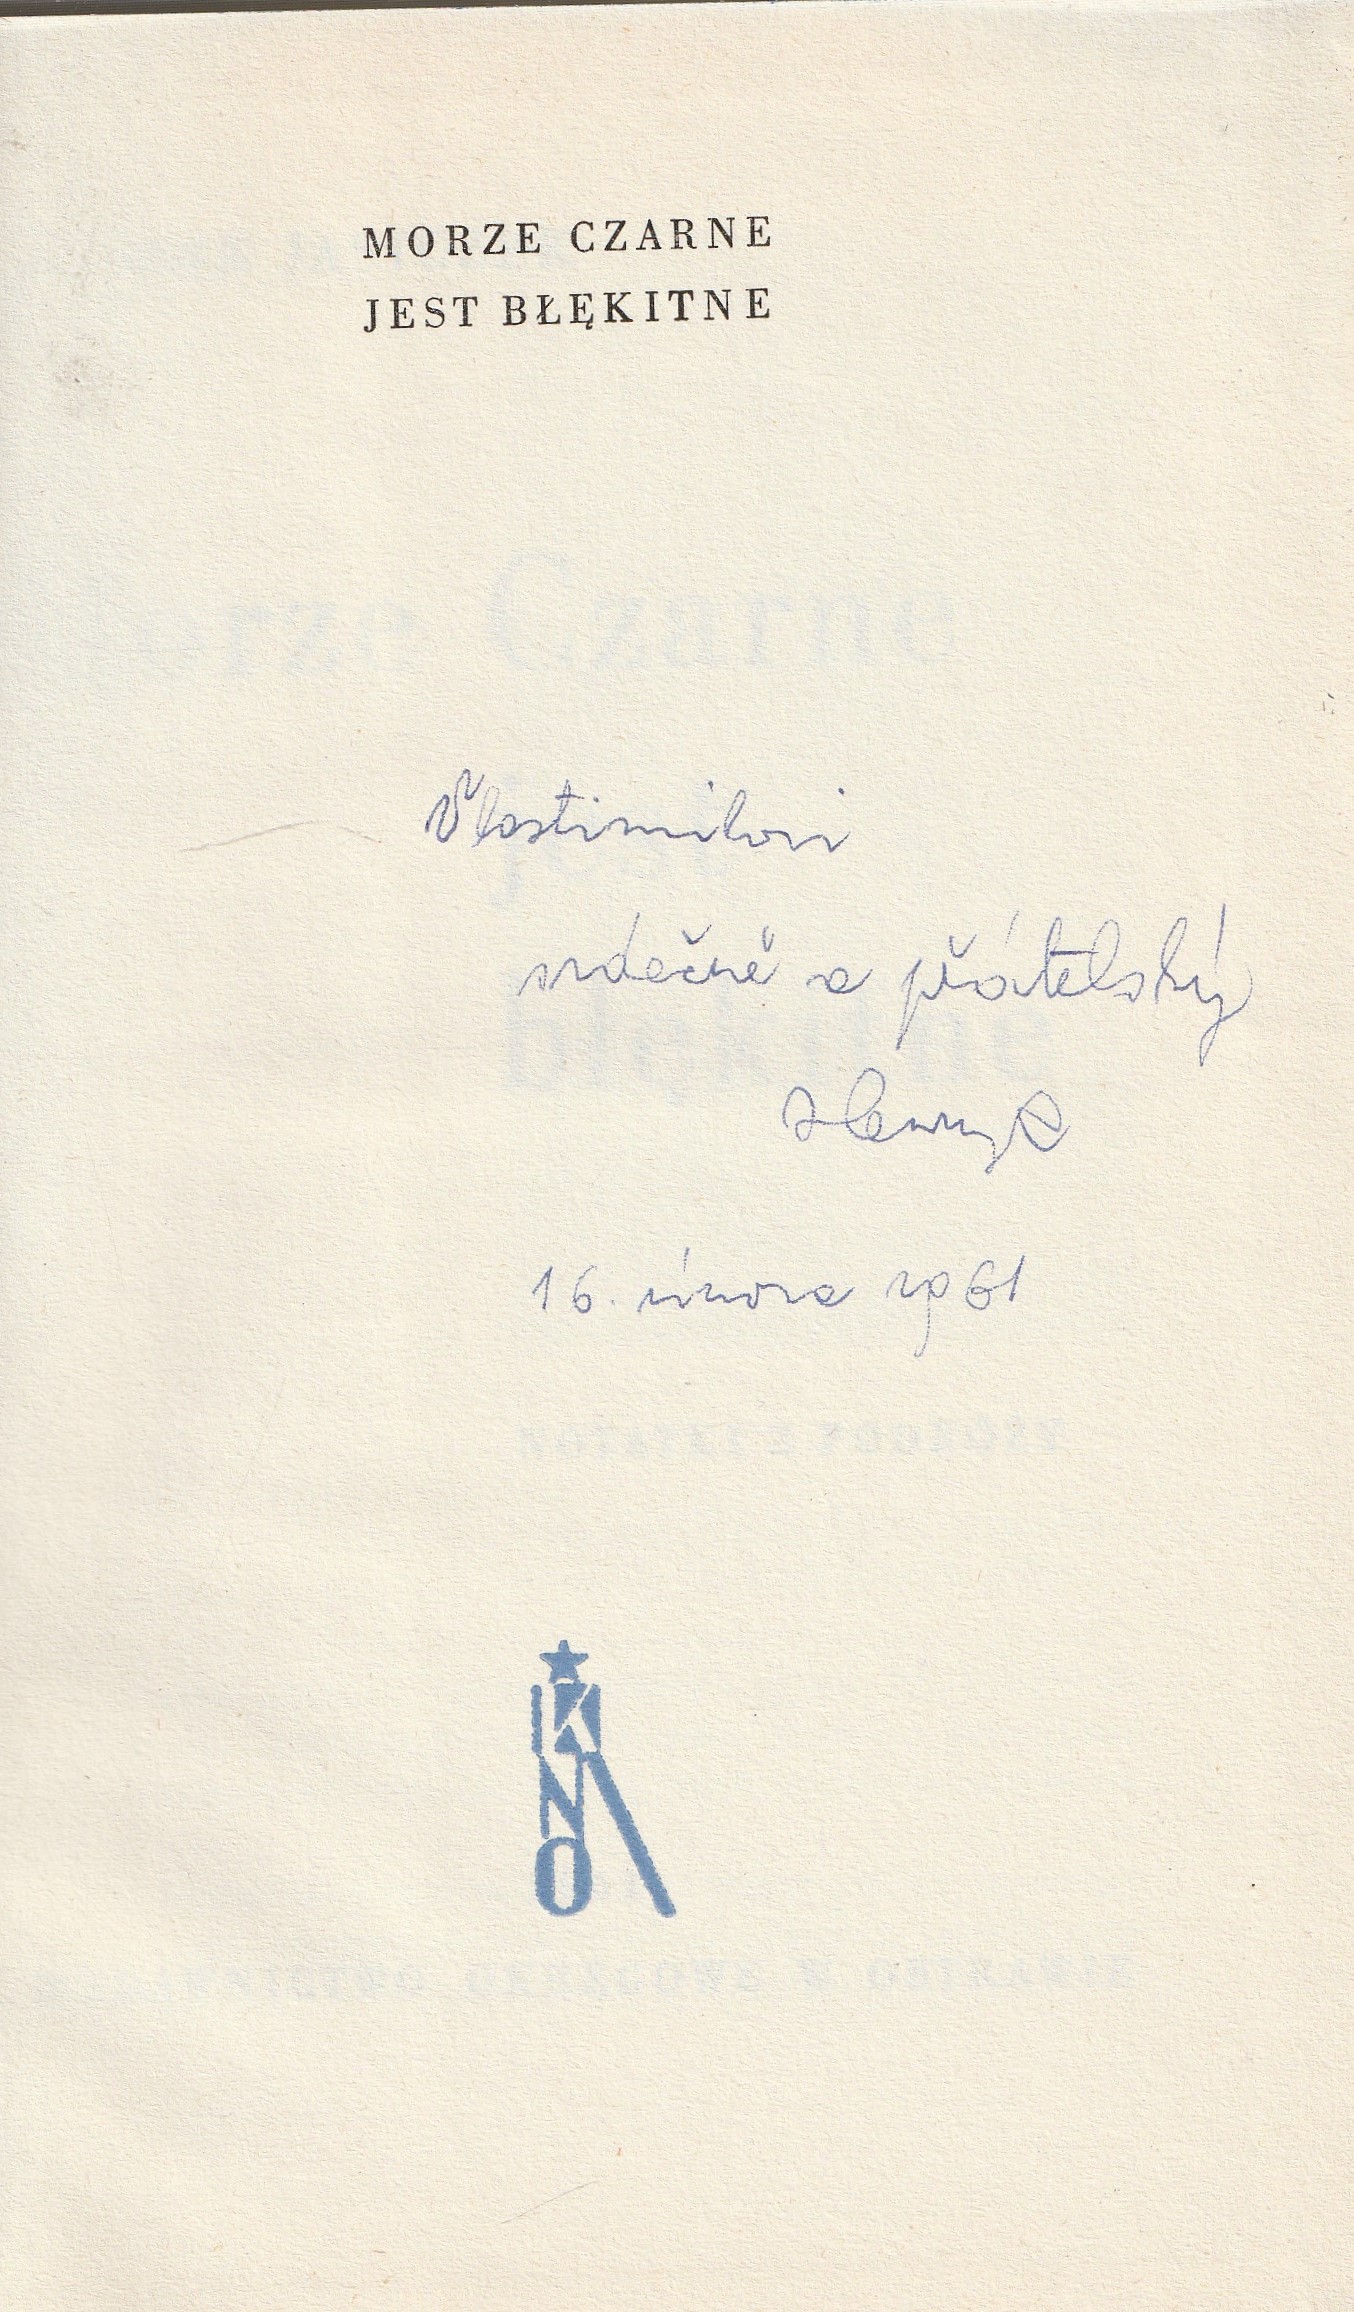 MORZE CZARNE
JEST BŁĘKITNE
Vlastimilovi
srdečně a přátelský
16. února 1961
KNO